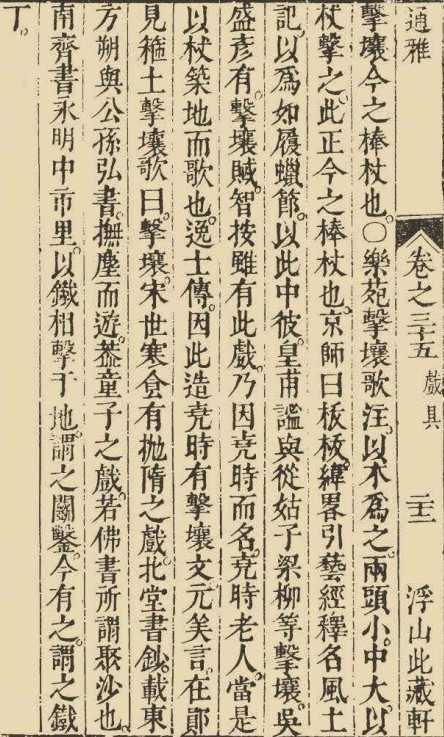 通雅 卷之三十五 戲具 二十三 浮山此藏軒
擊壤今之棒杖也○樂苑擊壤歌注以木爲之兩頭小中大以
杖擊之此正今之棒杖也京師曰板板緯畧引藝經釋名風土
記以爲如履蠟節以此中彼皇甫謐與從姑子梁柳等擊壤吳
盛彦有擊壤賦智按雖有此戲乃因堯時而名堯時老人當是
以杖築地而歌也逸士傳因此造堯時有擊壤文元美言在鄖
見箍土擊壤歌曰擊壤宋世寒食有抛堶之戲北堂書鈔載東
方朔與公孫弘書撫塵而遊葢童子之戲若佛書所謂聚沙也
南齊書永明中市里以鐵相擊于地謂之鬭鑿今有之謂之鐵
丁